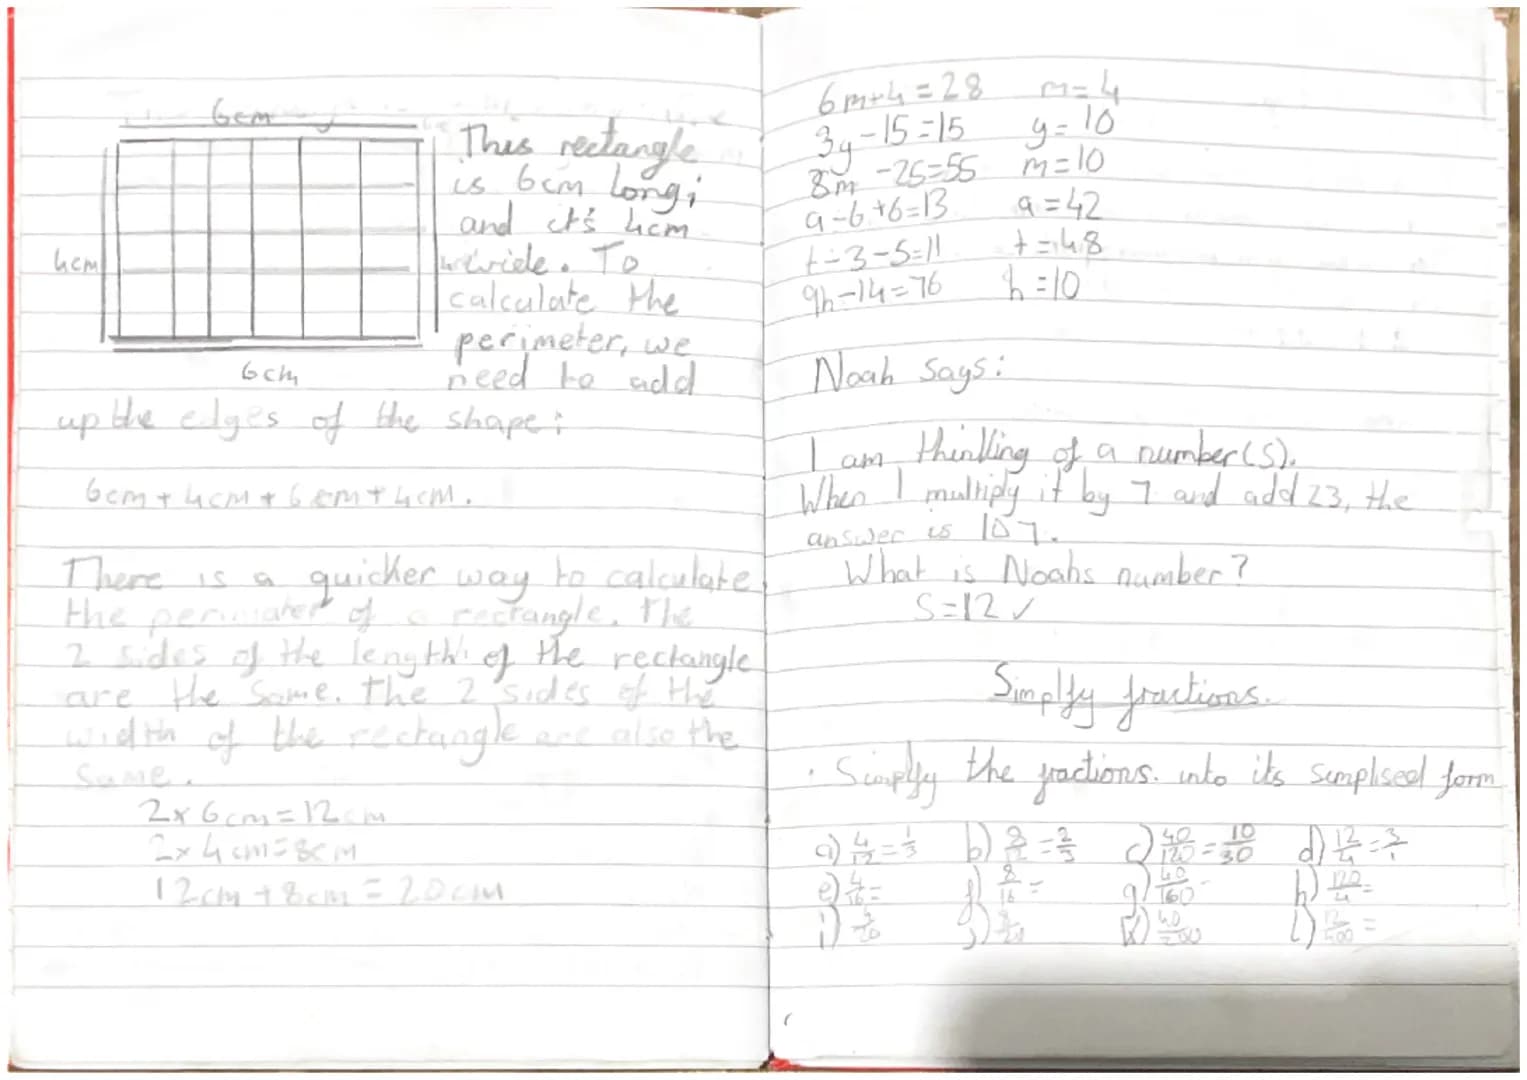 6cm
This rectangle
is 6cm long;
and it's 4cm
4cm
wide. To
calculate the
perimeter, we
6cm
need to add
up the edges of the shape:
6cm + 4cm + 6cm + 4cm.
There is a quicker way to calculate
the perimater of a rectangle. The
2 sides of the length of the rectangle
are the same. The 2 sides of the
width of the rectangle are also the
same.
2x 6cm = 12cm
2x 4cm = 8cm
12cm + 8cm = 20cm
6m+4 = 28 m=4
3y -15 =15 y= 10
8m -25=55 m=10
a-6+6=13 a=42
t-3-5=11 t=48
9h-14=76 h=10
Noah says:
I am thinking of a number(s).
When I multiply it by 7 and add 23, the
answer is 107.
What is Noahs number?
S=12 ✓
Simplfy fractions.
· Simplfy the fractions. into its simplised form
a) 4/12 = 1/3 b) 8/12 = 2/3 c) 40/120 = 10/30 d) 12/4 = 3/1
e) 4/16 = f) 8/16 = g) 40/160 - h) 120/4 =
i) 4/20 j) 8/20 k) 40/200 l) 12/400 =